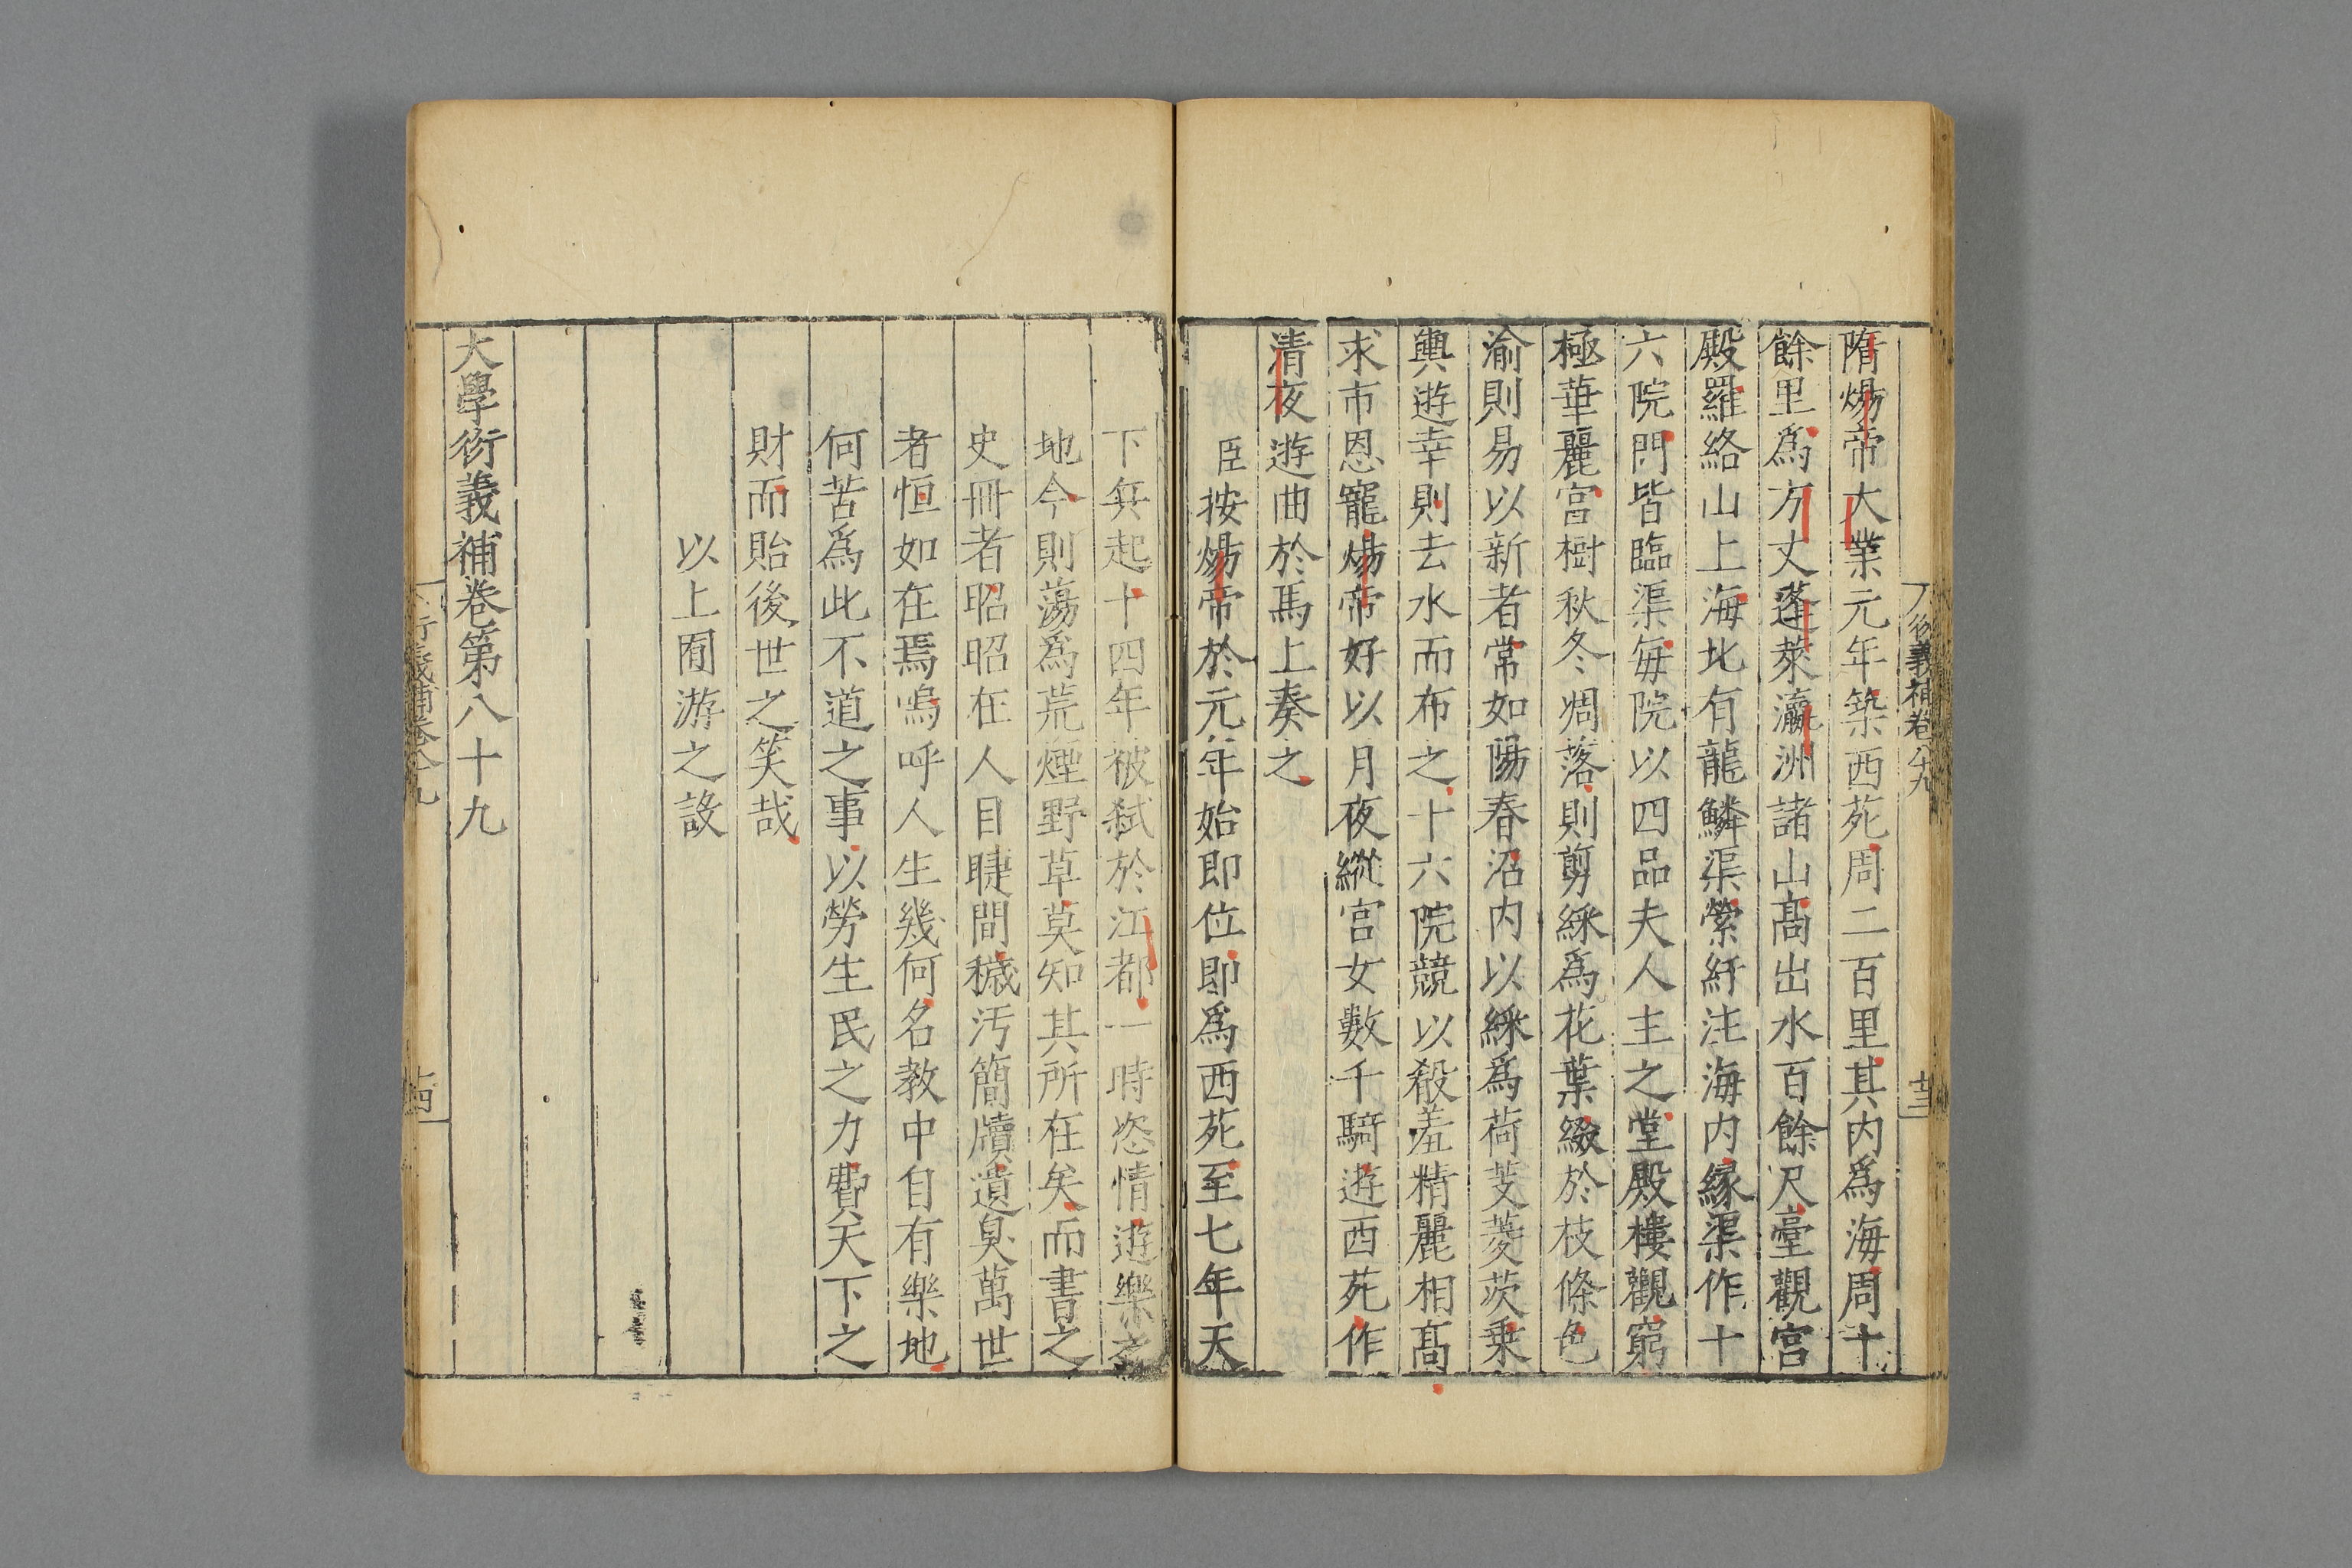 隋煬帝大業元年築西苑周二百里其内爲海周十
餘里爲方丈蓬萊瀛洲諸山髙出水百餘尺臺觀宮
殿羅絡山上海北有龍鱗渠縈紆注海内縁渠作十
六院門皆臨渠每院以四品夫人主之堂殿樓觀窮
極華麗宮樹秋冬凋落則剪綵爲花葉綴於枝條色
渝則易以新者常如陽春沼内以綵爲荷芰菱茨乗
輿遊幸則去氷而布之十六院競以殽羞精麗相髙
求市恩寵煬帝好以月夜縱宮女數千騎遊西苑作
清夜遊曲於馬上奏之
臣按煬帝於元年始即位即爲西苑至七年天
下兵起十四年被弑於江都一時恣情遊樂之
地今則蕩爲荒煙野草莫知其所在矣而書之
史冊者昭昭在人目睫間穢汚簡牘遺臭萬世
者恒如在焉嗚呼人生幾何名教中自有樂地
何苦爲此不道之事以勞生民之力費天下之
財而貽後世之笑哉
以上囿游之設
大學衍義補卷第八十九
衍義補卷八十九
十三
衍義補卷八十九
十四